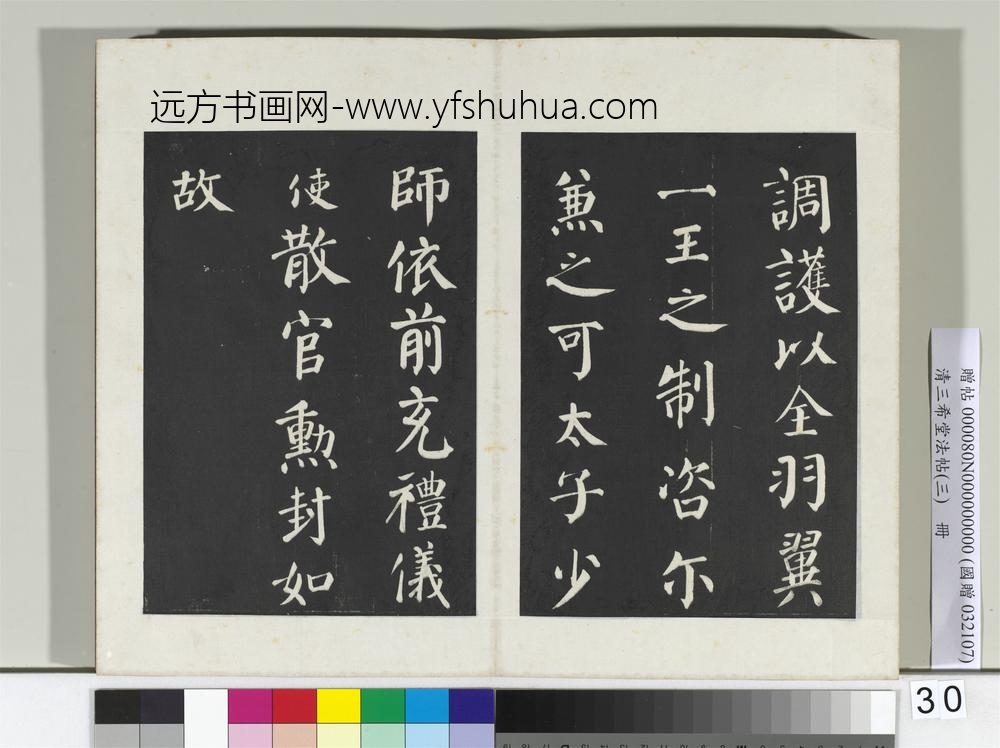 远方书画网-www.yfshuhua.com
調護以全羽翼
一王之制咨尓
兼之可太子少
師依前充禮儀
使散官勳封如
故
贈帖 000080N000000000 (國贈 032107)
清三希堂法帖(三) 冊
30